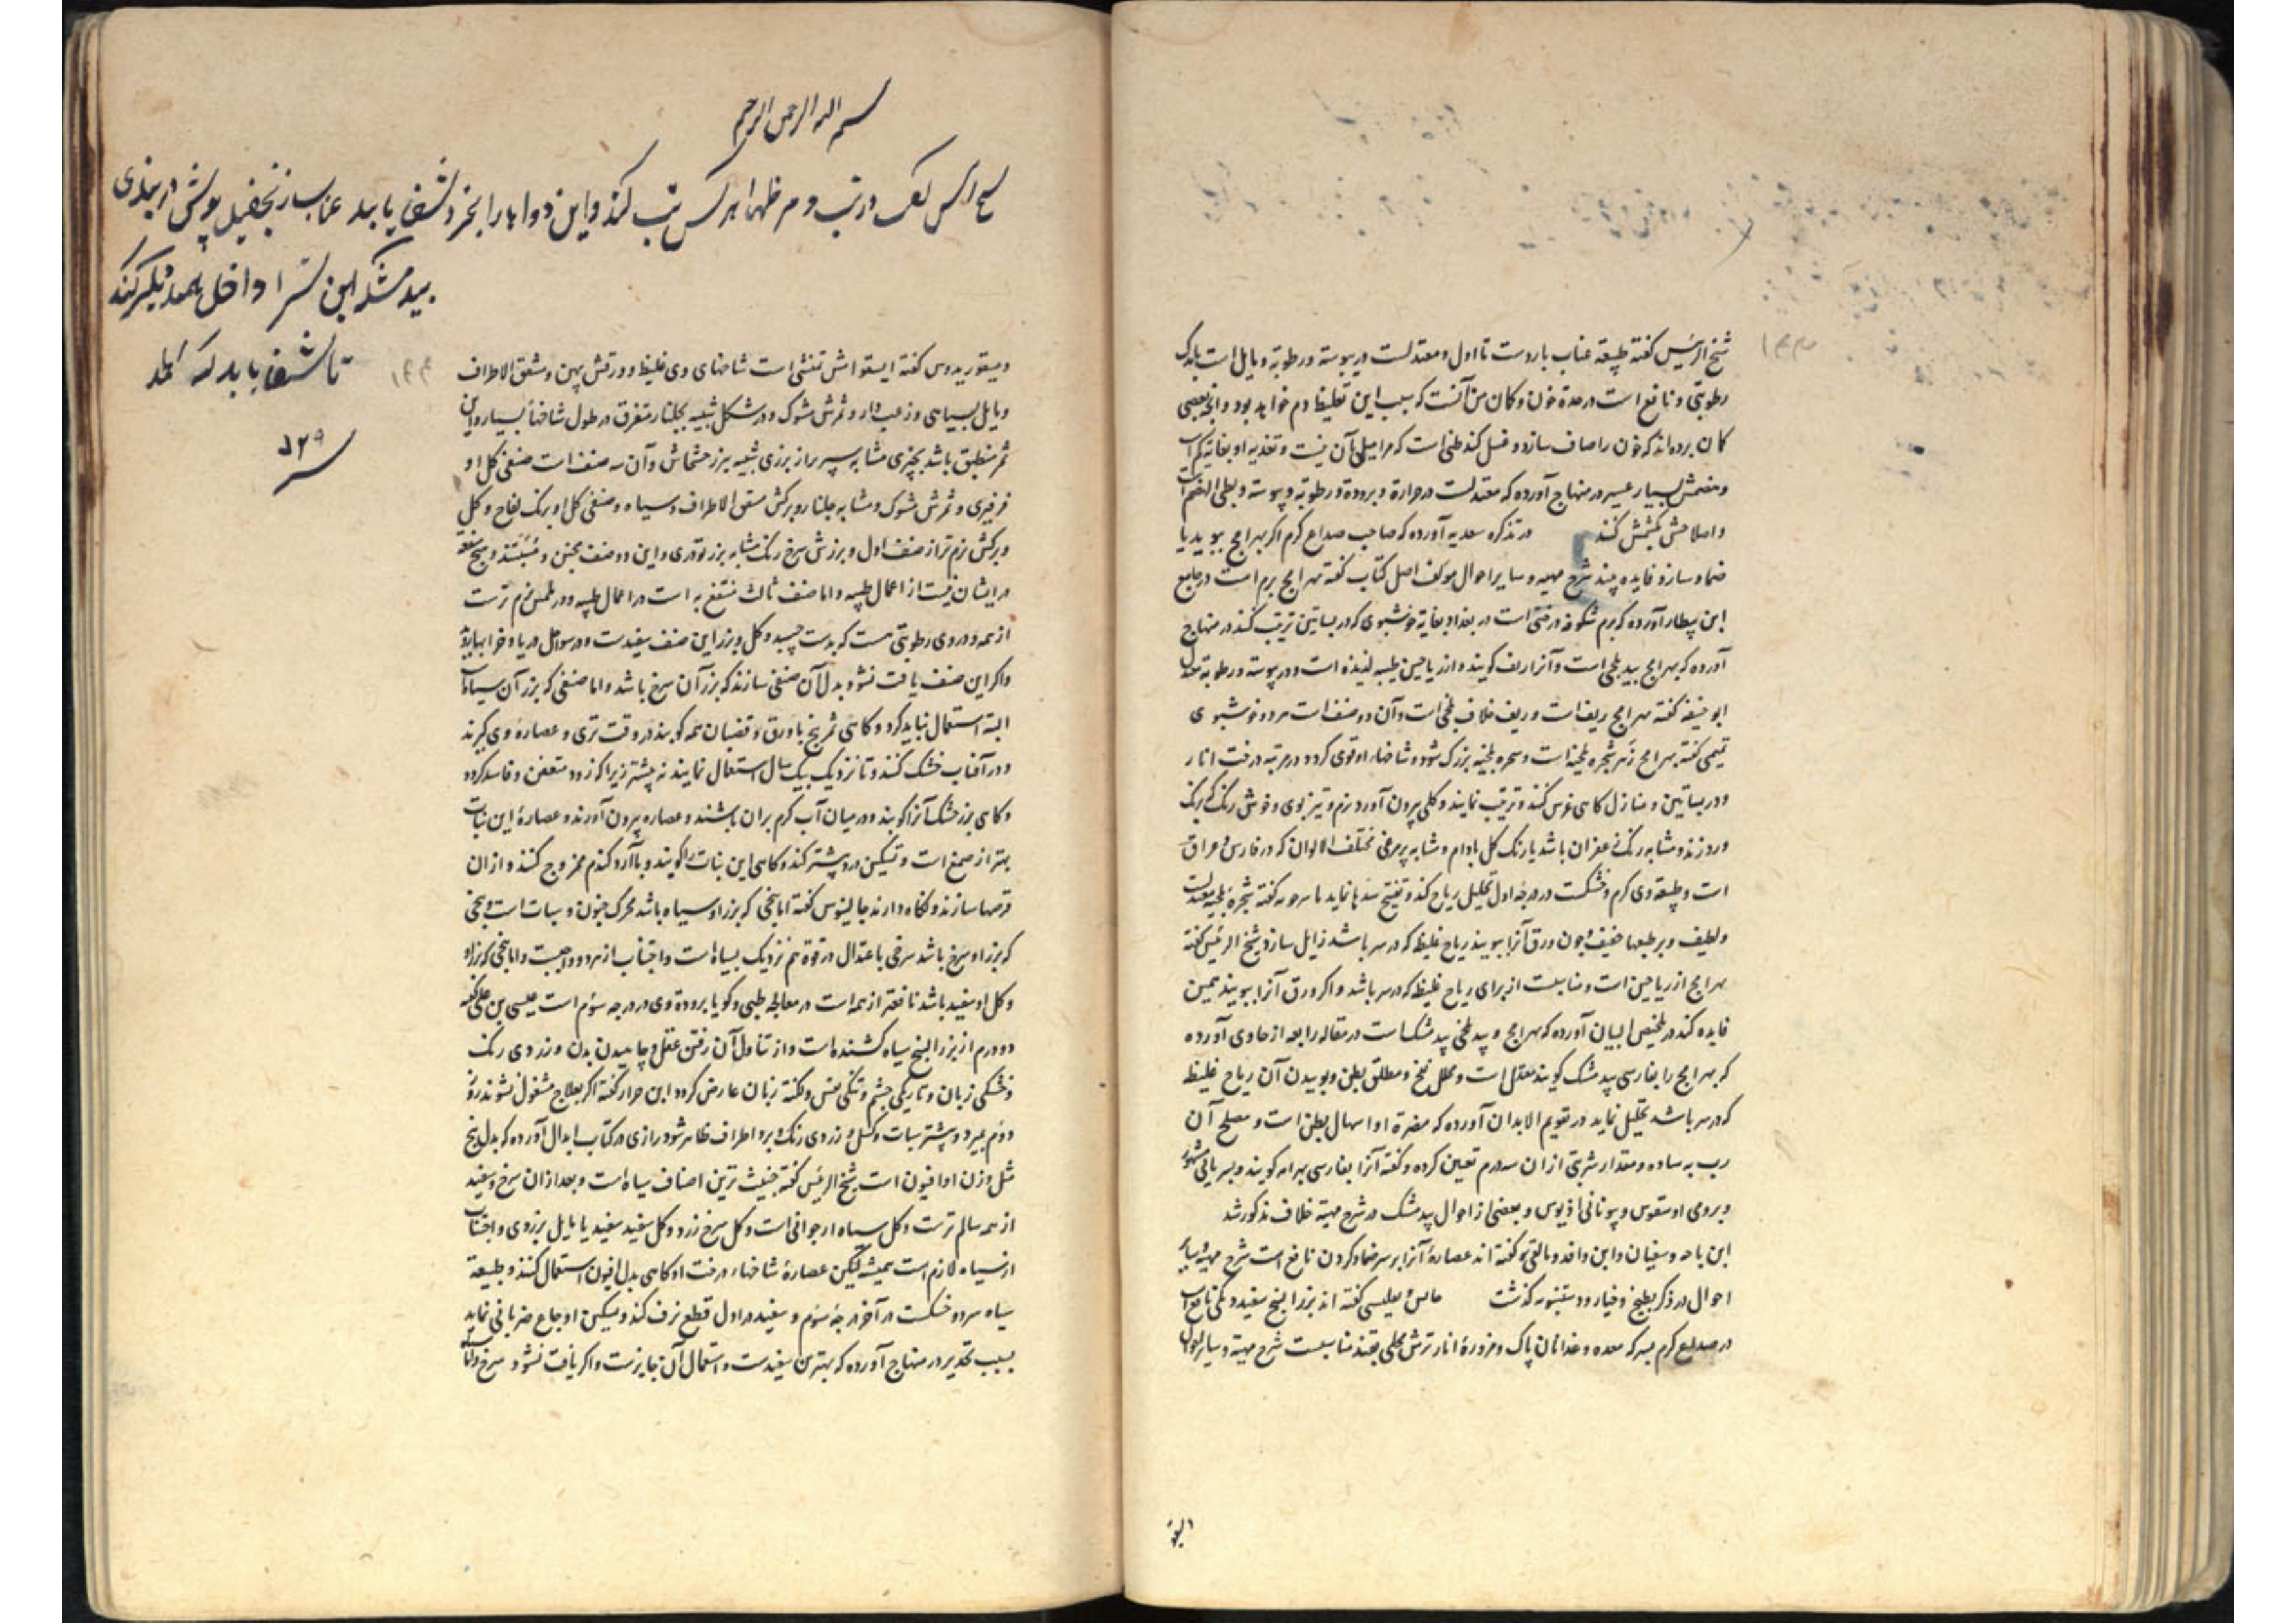 شیخ الرئیس گفته طبیعة عناب باردست تا اول و معتدلست در یبوسته و رطوبة و مایل است باندک
رطوبتی و نافع است در حدة خون و گمان من آنست که سبب این تغلیظ دم خواهد بود و آنچه بعضی
گمان برده‌اند که خون را صاف سازد و غسل کند ظنی است که مرا میلی بآن نیست و تغذیه او بغایة کم است
و هضمش بسیار عسیر در منهاج آورده که معتدلست در حرارة و برودة و رطوبة و یبوسته و بطی الهضم است
و اصلاحش بکشمش کنند در تذکره سعدیه آورده که صاحب صداع گرم اگر بهرامج ببوید یا
ضماد سازد فایده بیند شرح مهیه و سایر احوال مولف اصل کتاب گفته بهرامج برم است در جامع
ابن بیطار آورده که برم شکوفه درختی است در بغداد بغایة خوشبوی که در بساتین تربیت کنند در منهاج
آورده که بهرامج بید بلخی است و آنرا رنف گویند و از ریاحین طیبه لذیذه است و در یبوسته و رطوبة معتدل
ابو حنیفه گفته بهرامج رنف است و رنف خلاف بلخی است و آن دو صنف است هر دو خوشبوی
تمیمی گفته بهرامج زهر شجره بلخیه است و شجره بلخیه بزرگ شود و شاخهاء او قوی گردد در مرتبه درخت انار
و در بساتین و منازل گاهی غرس کنند و تربیت نمایند و گلی بیرون آورد نرم و تیز بوی و خوش رنگ که برنگ
ورد زند و مشابه رنگ زعفران باشد یا رنگ گل بادام و مشابه پر مرغی مختلف الالوان که در فارس و عراق
است و طبیعة وی گرم و خشکست در درجه اول تحلیل ریاح کند و تفتیح سدها نماید ماسرجویه گفته شجرة بلخیه معتدلست
و لطیف و بر طبعها خفیف و چون ورق آنرا ببویند ریاح غلیظ که در سر باشد زایل سازد شیخ الرئیس گفته
بهرامج از ریاحین است و مناسبست از برای ریاح غلیظ که در سر باشد و اگر ورق آنرا ببویند همین
فایده کند در تلخیص البیان آورده که بهرامج و بید بلخی بید مشک است در مقاله رابعه از حاوی آورده
که بهرامج را بفارسی بید مشک گویند معتدل است و محلل نفخ و مطلق بطن و بوییدن آن ریاح غلیظ
که در سر باشد تحلیل نماید در تقویم الابدان آورده که مضرة او اسهال بطن است و مصلح آن
رب به ساده و مقدار شربتی از ان سه درم تعیین کرده و گفته آنرا بفارسی بهرامه گویند و بسریانی
و برومی اوسقوس و بیونانی اذیوس و بعضی از احوال بید مشک در شرح مهیة خلاف مذکور شد
ابن باجه و سفیان و ابن وافد و مالقی گفته اند عصارة آنرا بر سر ضماد کردن نافع است شرح مهیة و سایر
احوال در ذکر بطیخ و خیار و دستنبویه گذشت گفته اند بزر البنج سفید دو دانگی نافع است
در صداع گرم بسرکه معده و غذا نان پاک و مزورة انار ترش محلی بقند مناسبست شرح مهیة و سایر احوال
البنج
بسم الله الرحمن الرحیم
هر کس تب کند و این دواها را بخورد شفا یابد عناب
بید مشک این را داخل همدیگر کند
تا شفا یابد
۱۲۹
۱۴۴
دیسقوریدوس گفته ایسقوامش تمنشی است شاخهای وی غلیظ و ورقش پهن و مشقق الاطراف
و مایل بسیاهی و زغب دار و ثمرش مشوک و در شکل شبیه بجلنار متفرق در طول شاخها بسیار و این
ثمر منطبق باشد بچیزی مشابه سپر پر از بزری شبیه ببزر خشخاش و آن سه صنف است صنفی گل او
فرفیری و ثمرش مشوک و مشابه جلنار و برگش مشقق الاطراف و سیاه و صنفی گل او برنگ تفاح و گل
و برگش نرم تر از صنف اول و بزرش سرخ رنگ مشابه بزر تودری و این دو صنف مجنن و مسبتند و هیچ منفعة
در ایشان نیست از اعمال طبیه و اما صنف ثالث منتفع به است در اعمال طبیه و در لمس نرم ترست
از همه و در وی رطوبتی هست که بدست چسبد و گل و بزر این صنف سفیدست و در سواحل دریا و خرابها روید
و اگر این صنف یافت نشود بدل آن صنفی سازند که بزر آن سرخ باشد و اما صنفی که بزر آن سیاه است
البته استعمال نباید کرد و گاهی ثمر بنج با ورق و قضبان همه کوبند در وقت تری و عصاره وی گیرند
و در آفتاب خشک کنند و تا نزدیک بیک سال استعمال نمایند نه بیشتر زیرا که زود متعفن و فاسد گردد
و گاهی بزر خشک آنرا کوبند و در میان آب گرم بران پاشند و عصاره بیرون آورند و عصارة این نبات
بهتر از صمغ است و تسکین درد بیشتر کند و گاهی این نبات را کوبند و با آرد گندم ممزوج کنند و از ان
قرصها سازند و نگاه دارند جالینوس گفته اما بنجی که بزر او سیاه باشد محرک جنون و سبات است و بنجی
که بزر او سرخ باشد سرخی باعتدال در قوة هم نزدیک بسیاه است و اجتناب از هر دو واجبست و اما بنجی که بزر او
و گل او سفید باشد نافعتر از همه است در معالجه طبی و گویا برودة وی در درجه سوم است عیسی بن علی گفته
دو درم از بزر البنج سیاه کشنده است و از تناول آن رفتن عقل و چاهیدن بدن و زردی رنگ
و خشکی زبان و تاریکی چشم و تنگی نفس و لکنة زبان عارض گردد ابن جزار گفته اگر بعلاج مشغول نشوند روز
دوم بمیرد و بیشتر سبات و کسل و زردی رنگ و برد اطراف ظاهر شود رازی در کتاب ابدال آورده که بدل بنج
مثل وزن او افیون است شیخ الرئیس گفته خبیث ترین اصناف سیاه است و بعد از ان سرخ و سفید
از همه سالم ترست و گل سیاه ارجوانی است و گل سرخ زرد و گل سفید سفید یا مایل بزردی و اجتناب
از سیاه لازم است همیشه لیکن عصارة شاخهاء درخت او گاهی بدل افیون استعمال کنند و طبیعة
سیاه سرد و خشکست در آخر درجه سوم و سفید در اول قطع نزف کند و تسکین اوجاع ضربانی نماید
بسبب تخدیر در منهاج آورده که بهترین سفیدست و استعمال آن جایزست و اگر یافت نشود سرخ و اما